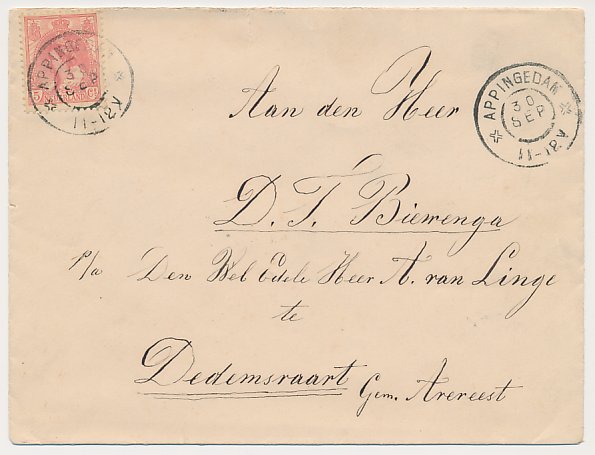 APPINGEDAM
30
SEP
11-12V
5
APPINGEDAM
30
SEP
11-12V
Aan den Heer
D. T. Bierenga
p/a Den Wel Edele Heer A. van Linge
te
Dedemsvaart Gem. Avereest